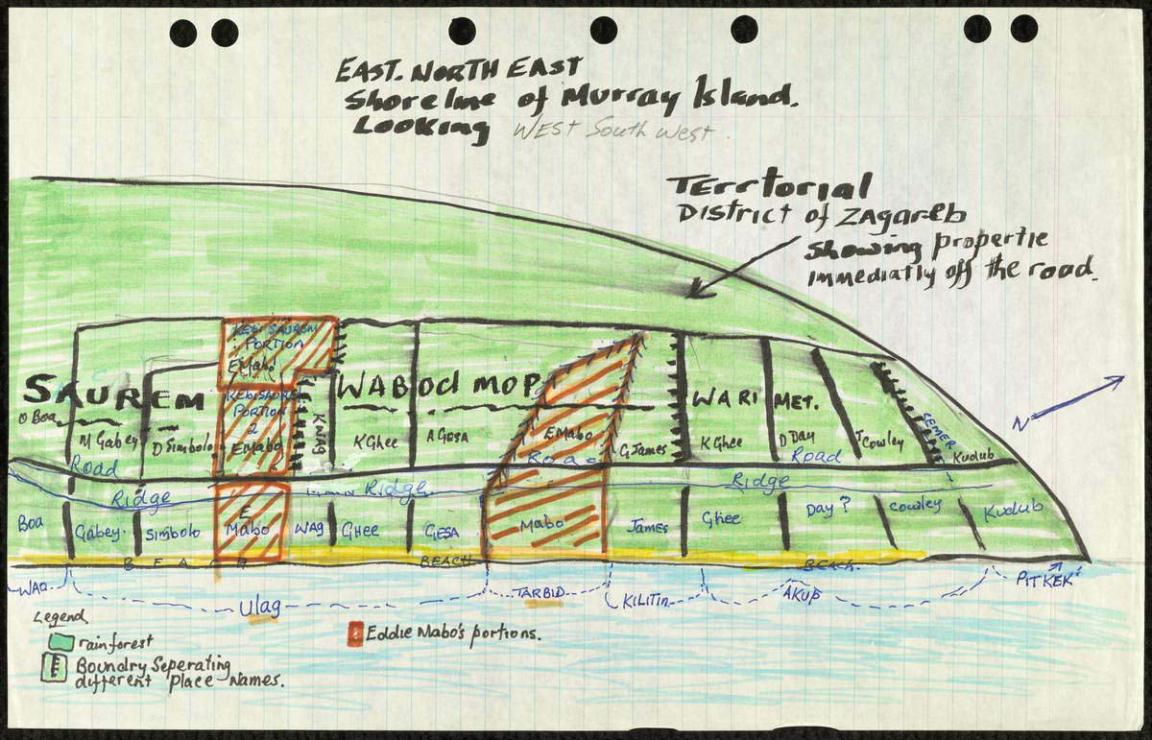 EAST. NORTH EAST
Shoreline of Murray Island.
Looking WEST South West.
Territorial
District of Zagareb
Showing propertie
immediatly off the road.
KEBI SAUREM
PORTION
E Mabo
SAUREM
WABOd MOP
WARI
MET.
N
O Boa
M Gabey
D Simbolo
KEBI SAUREM
PORTION
2
E Mabo
K WAQ
K Ghee
A GESA
E Mabo
G James
K Ghee
D Day
J Cowley
SEMER
Kudub
Road
Road
Road
Ridge
Ridge
Ridge
Boa
Gabey
Simbolo
E
Mabo
WAQ
GHEE
GESA
Mabo
James
Ghee
Day ?
Cowley
Kudub
BEACH
BEACH
BEACH
WAQ
Ulag
TARBID
KILITIN
AKUP
PITKEK
Legend
rainforest
Boundry Seperating
different Place Names.
Eddie Mabo's portions.